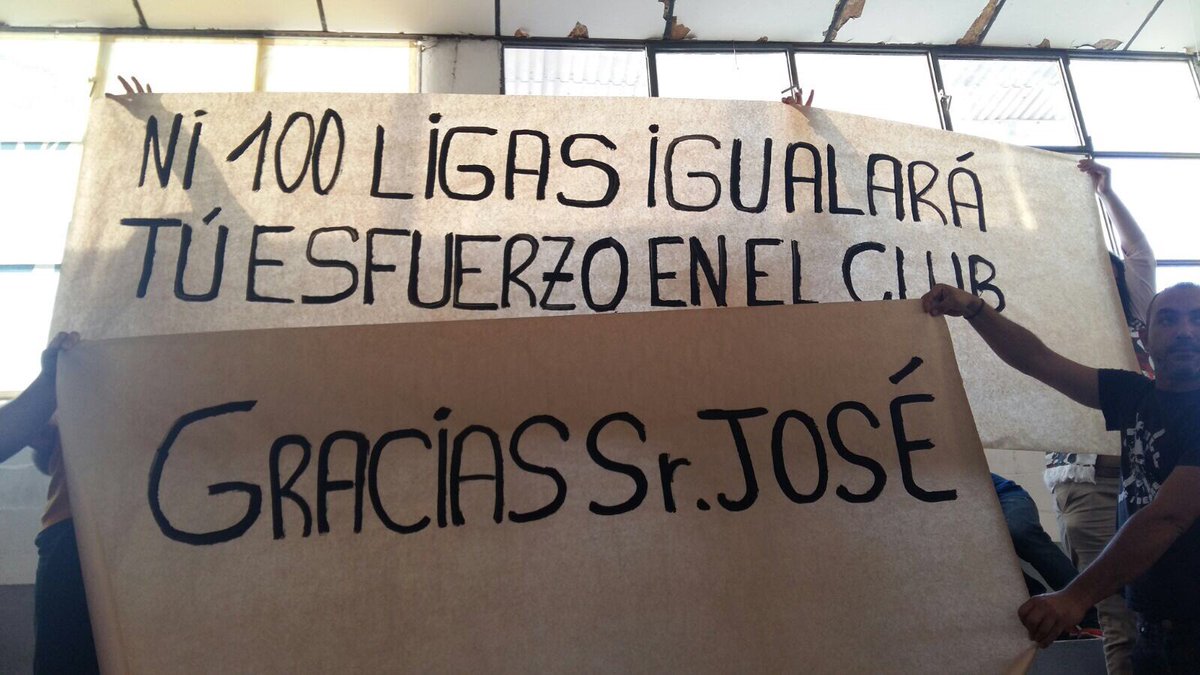 Ni 100 LiGAS iGUALARÁ
TÚ ESFUERZO EN EL CLUB
GRACiAS Sr. JOSÉ